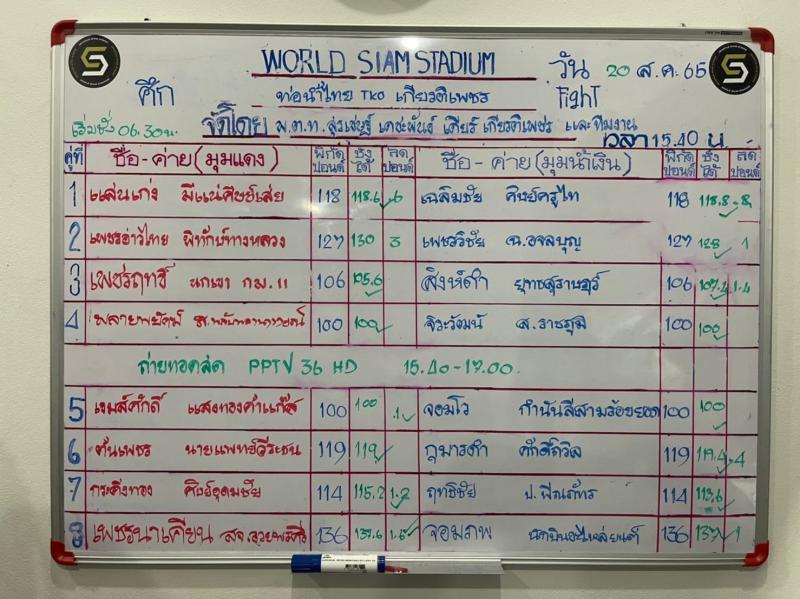 WORLD SIAM STADIUM
วัน 20 ส.ค. 65
ศึก ท่อน้ำไทย TKO เกียรติเพชร Fight
เริ่มชั่ง 06.30 น. จัดโดย พ.ต.ท. สุรเชษฐ์ เดชะพันธ์ เกียร์ เกียรติเพชร และทีมงาน
เวลา 15.40 น.
คู่ที่ ชื่อ-ค่าย (มุมแดง) พิกัดปอนด์ ชั่งได้ ลดปอนด์ ชื่อ-ค่าย (มุมน้ำเงิน) พิกัดปอนด์ ชั่งได้ ลดปอนด์
1 แสนเก่ง มีแน่ศิษย์เสี่ย 118 118.6 .6 เฉลิมชัย ศิษย์ครูโท 118 118.8 .8
2 เพชรอ่าวไทย พิทักษ์ทางหลวง 127 130 3 เพชรวิชัย ฉ.อจลบุญ 127 128 1
3 เพชรฤทธิ์ นกเขา กม.11 106 105.6 สิงห์ดำ ยุทธสุราษฎร์ 106 107.4 1.4
4 พลายพยัคฆ์ 100 100 จิระวัฒน์ ส.ราชภูมิ 100 100
ถ่ายทอดสด PPTV 36 HD 15.40-17.00
5 เจมส์ศักดิ์ แสงทองคำแก๊ส 100 100 .1 จอมโว กำนันสีสามร้อยยอด 100 100
6 ต้นเพชร นายแพทย์วีระชน 119 119 กุมารดำ ศักดิ์ถวิล 119 119.4 .4
7 กระติงทอง ศิษย์อุดมชัย 114 115.2 1.2 ฤทธิชัย ป.พีณภัทร 114 113.6
8 เพชรนาเคียน 136 137.6 1.6 จอมภพ 136 137 1